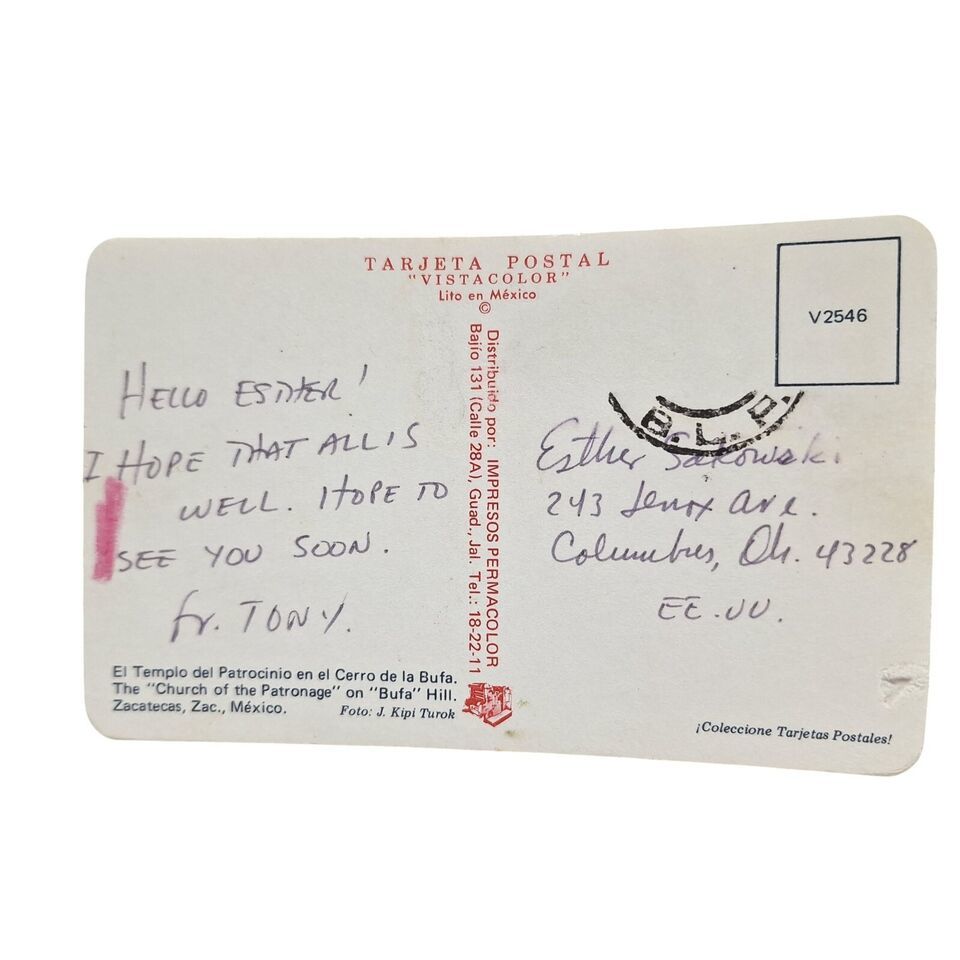 TARJETA POSTAL
"VISTACOLOR"
Lito en México
©
V2546
B.L.P.
HELLO ESTHER!
I HOPE THAT ALL IS
WELL. HOPE TO
SEE YOU SOON.
Fr. TONY.
El Templo del Patrocinio en el Cerro de la Bufa.
The "Church of the Patronage" on "Bufa" Hill.
Zacatecas, Zac., México.
Foto: J. Kipi Turok
Distribuido por: IMPRESOS PERMACOLOR
Bajío 131 (Calle 28A), Guad., Jal. Tel.: 18-22-11
Esther Sakowski
243 Lenox Ave.
Columbus, Oh. 43228
EE.UU.
¡Coleccione Tarjetas Postales!